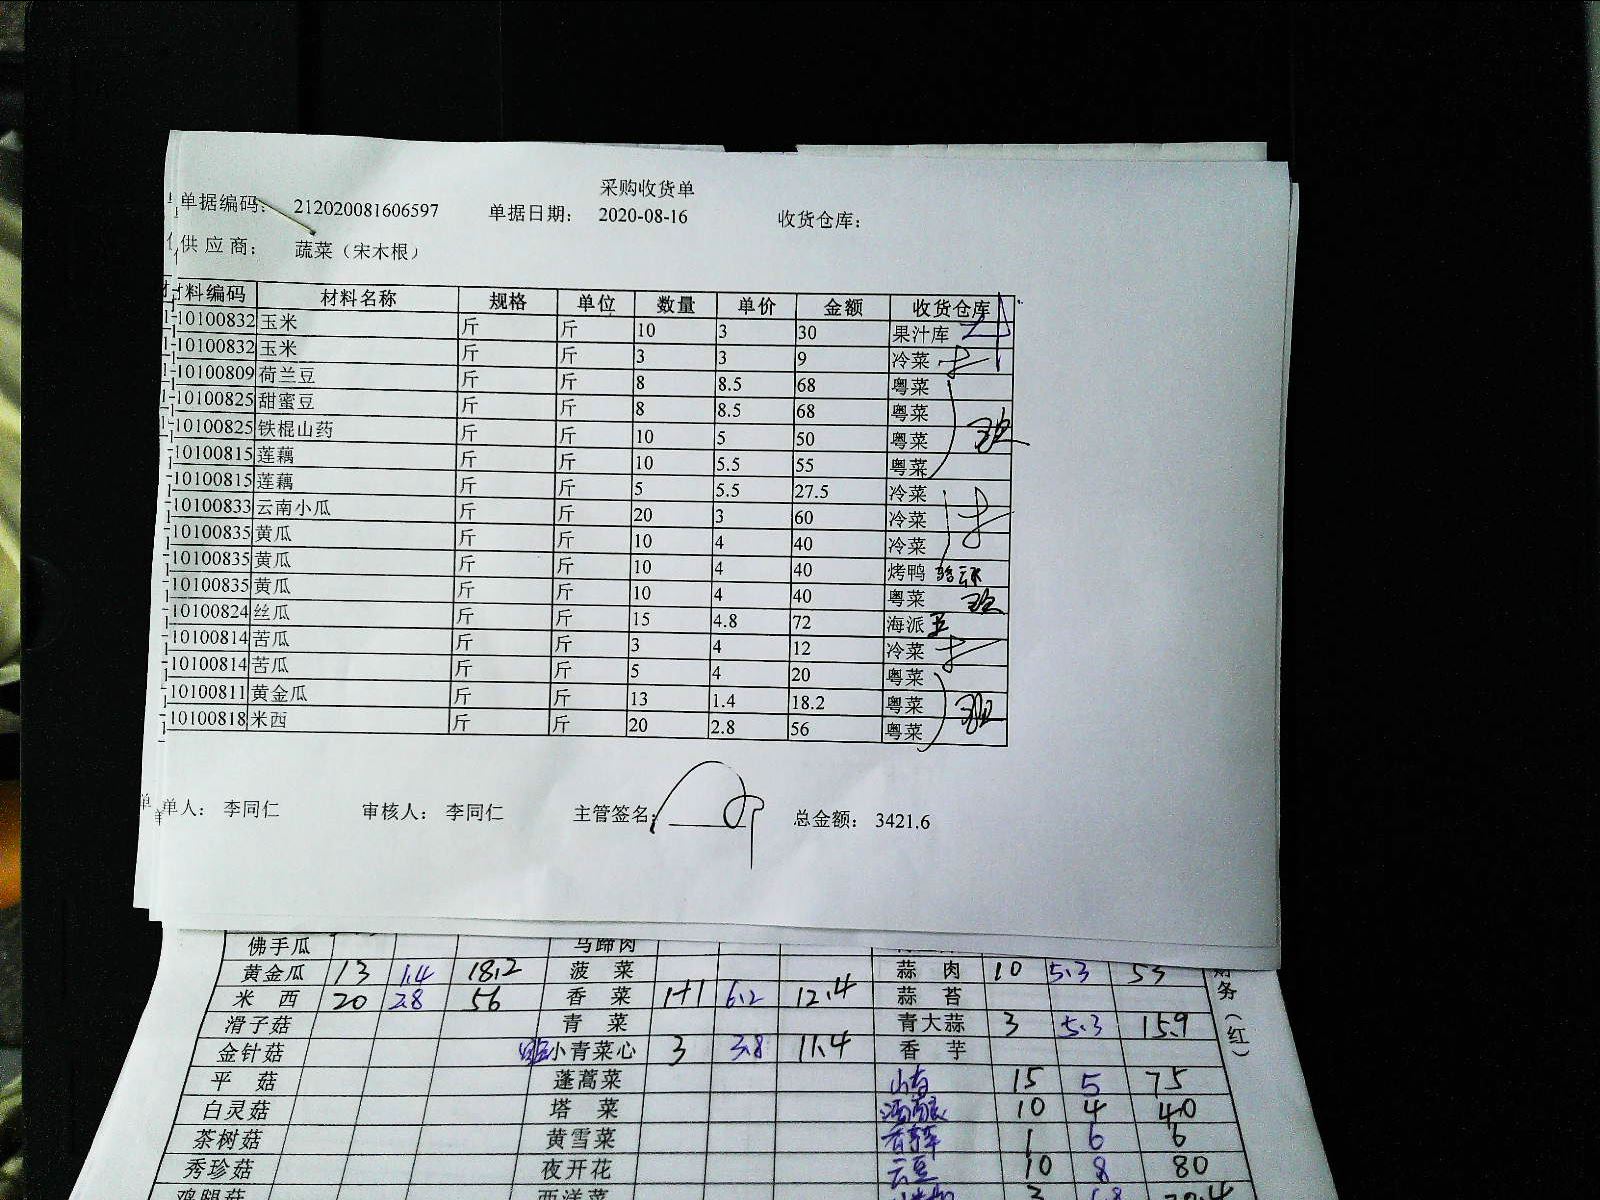 采购收货单
单据编码： 212020081606597 单据日期： 2020-08-16 收货仓库：
供 应 商： 蔬菜（宋木根）
材料编码 材料名称 规格 单位 数量 单价 金额 收货仓库
10100832 玉米 斤 斤 10 3 30 果汁库
10100832 玉米 斤 斤 3 3 9 冷菜
10100809 荷兰豆 斤 斤 8 8.5 68 粤菜
10100825 甜蜜豆 斤 斤 8 8.5 68 粤菜
10100825 铁棍山药 斤 斤 10 5 50 粤菜
10100815 莲藕 斤 斤 10 5.5 55 粤菜
10100815 莲藕 斤 斤 5 5.5 27.5 冷菜
10100833 云南小瓜 斤 斤 20 3 60 冷菜
10100835 黄瓜 斤 斤 10 4 40 冷菜
10100835 黄瓜 斤 斤 10 4 40 烤鸭
10100835 黄瓜 斤 斤 10 4 40 粤菜
10100824 丝瓜 斤 斤 15 4.8 72 海派
10100814 苦瓜 斤 斤 3 4 12 冷菜
10100814 苦瓜 斤 斤 5 4 20 粤菜
10100811 黄金瓜 斤 斤 13 1.4 18.2 粤菜
10100818 米西 斤 斤 20 2.8 56 粤菜
单人： 李同仁 审核人： 李同仁 主管签名： 总金额： 3421.6
佛手瓜 马蹄肉
黄金瓜 13 1.4 18.2 菠 菜 蒜 肉 10 5.3 53
米 西 20 2.8 56 香 菜 1+1 6.2 12.4 蒜 苔
滑子菇 青 菜 青大蒜 3 5.3 15.9
金针菇 小青菜心 3 3.8 11.4 香 芋
平 菇 蓬蒿菜 15 5 75
白灵菇 塔 菜 10 4 40
茶树菇 黄雪菜 1 6 6
秀珍菇 夜开花 云豆 10 8 80
鸡腿菇 西洋菜
财务（红）